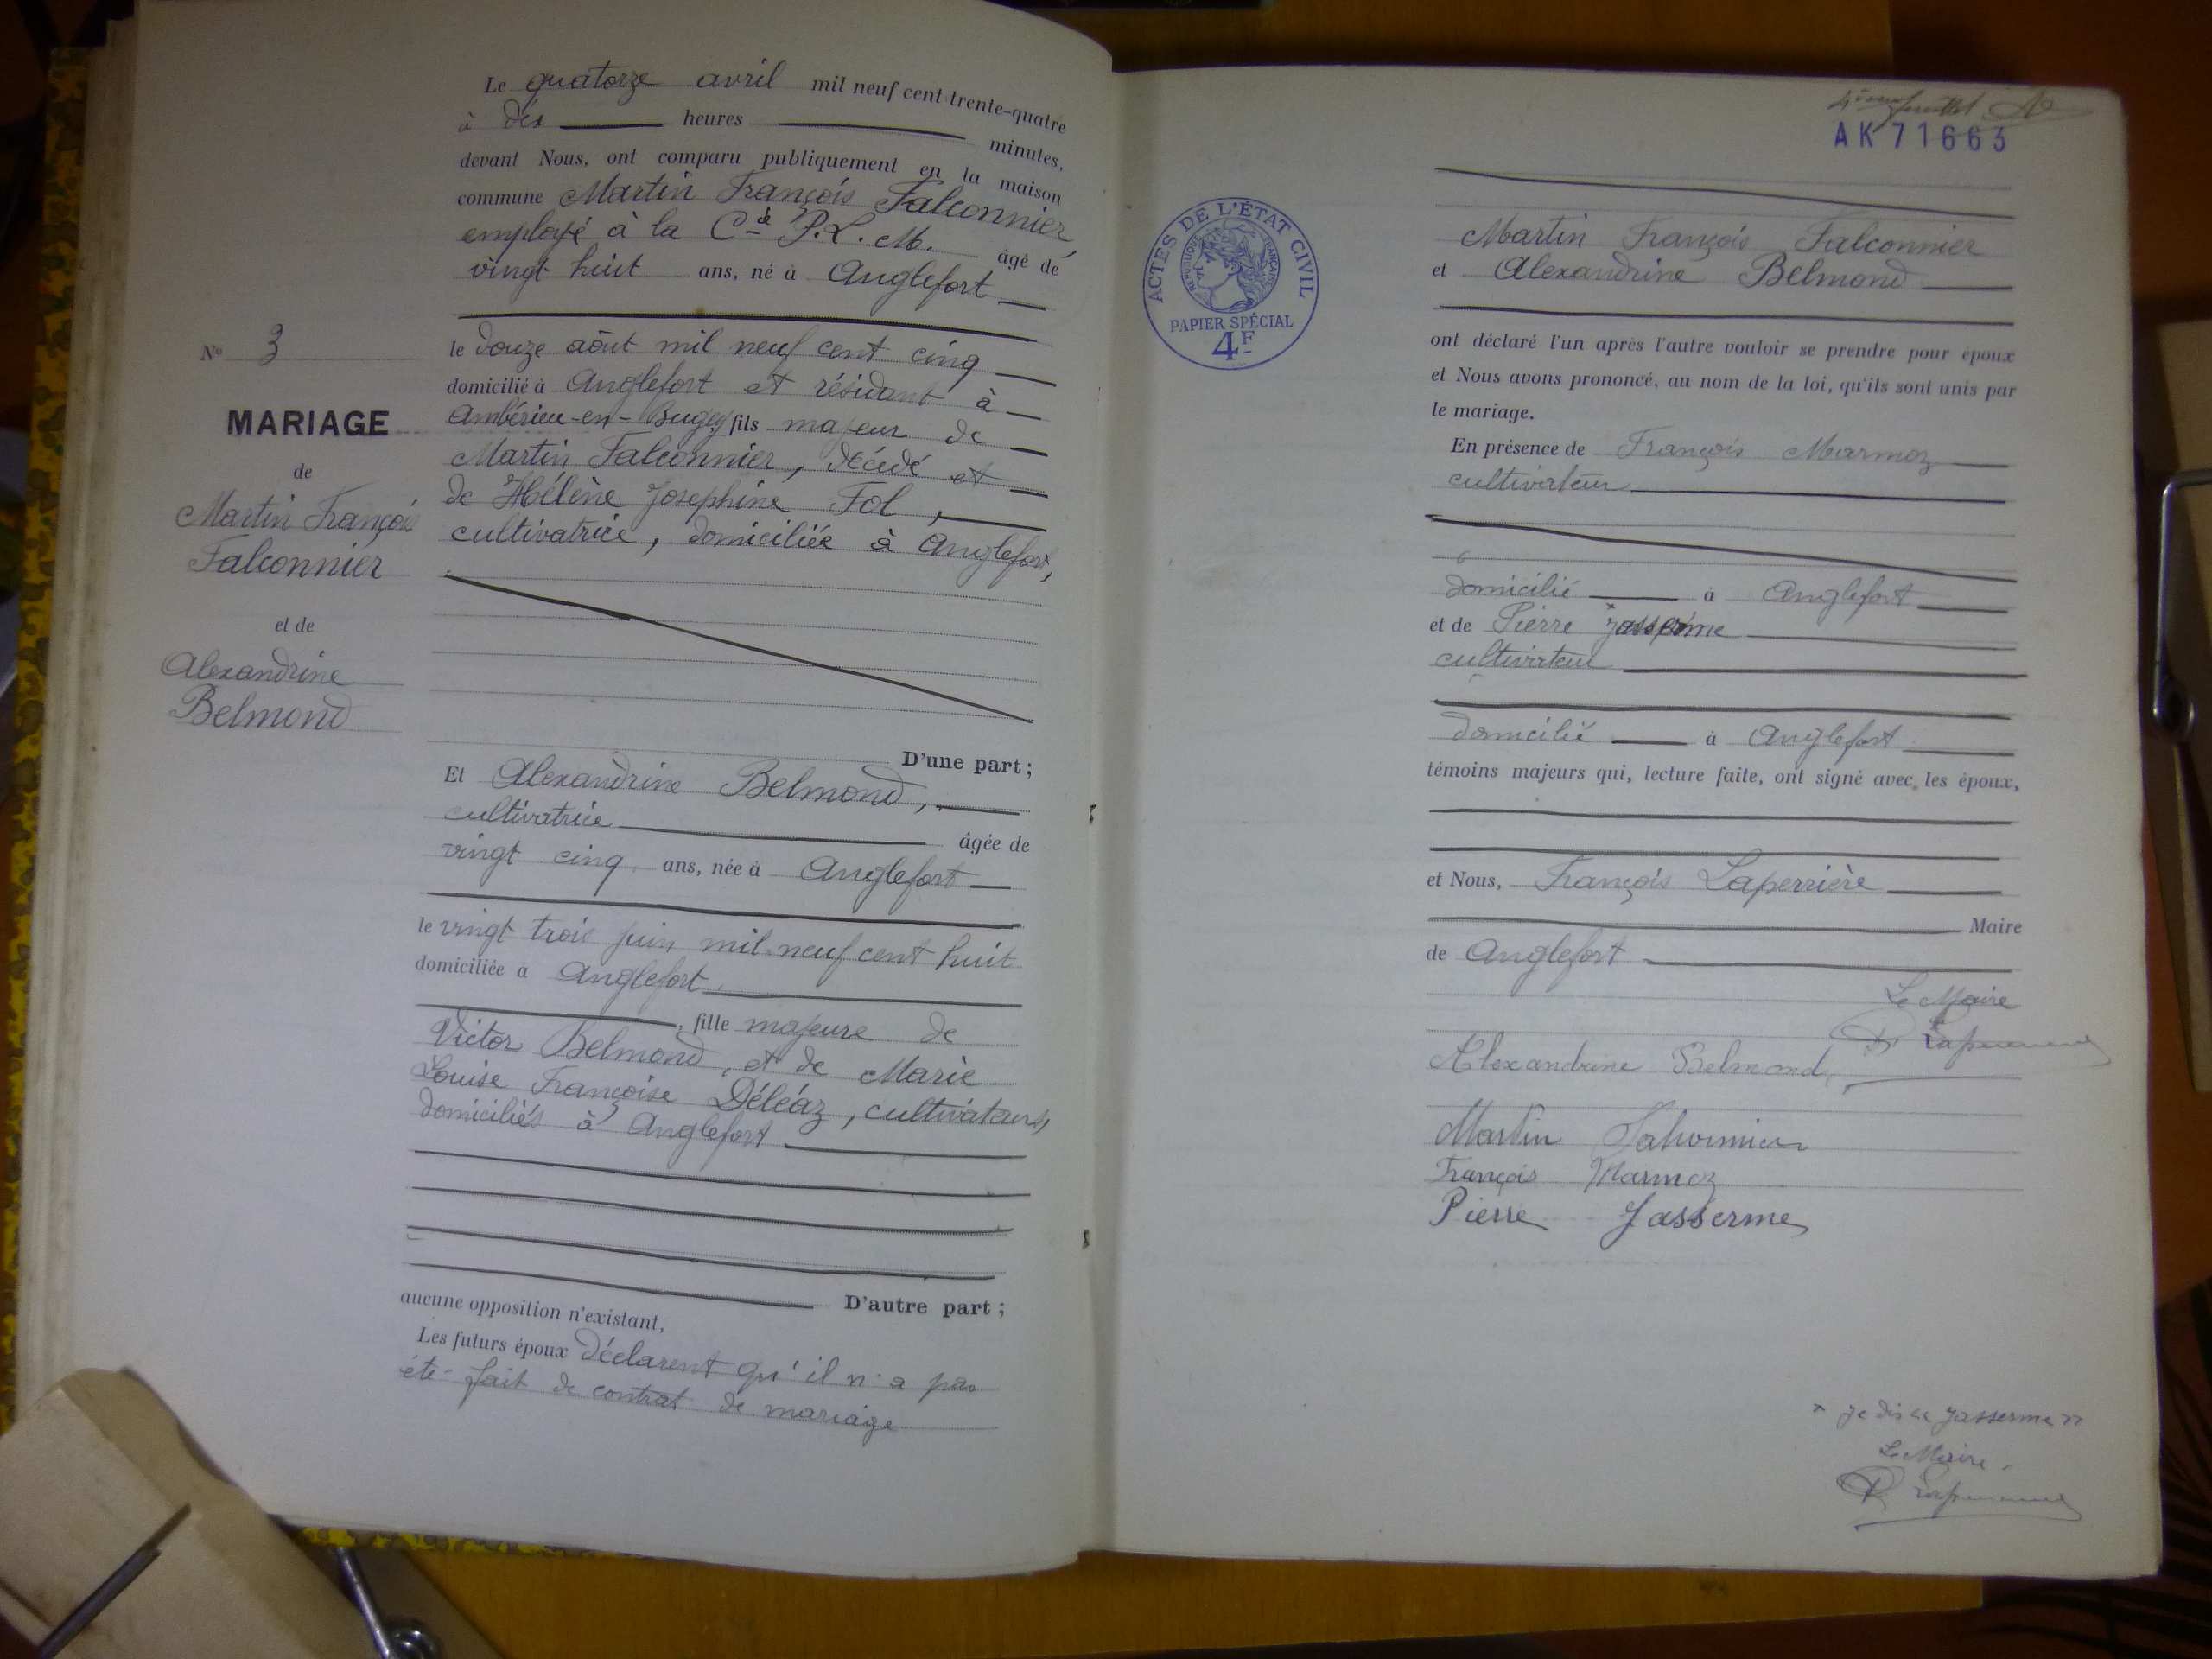 Le quatorze avril mil neuf cent trente-quatre
à dix heures minutes,
devant Nous, ont comparu publiquement en la maison
commune Martin François Falconnier,
employé à la Cie P.L.M. âgé de
vingt huit ans, né à Anglefort
le douze août mil neuf cent cinq
domicilié à Anglefort et résidant à
Ambérieu-en-Bugey fils majeur de
Martin Falconnier, décédé et
de Hélène Josephine Fol,
cultivatrice, domiciliée à Anglefort,
D'une part ;
Et Alexandrine Belmond,
cultivatrice âgée de
vingt cinq ans, née à Anglefort
le vingt trois juin mil neuf cent huit
domiciliée à Anglefort
, fille majeure de
Victor Belmond, et de Marie
Louise Françoise Déléaz, cultivateurs,
domiciliés à Anglefort
D'autre part ;
aucune opposition n'existant,
Les futurs époux déclarent qu'il n'a pas
été fait de contrat de mariage
No 3
MARIAGE
de
Martin François
Falconnier
et de
Alexandrine
Belmond
AK 71663
ACTES DE L'ÉTAT CIVIL
RÉPUBLIQUE FRANÇAISE
PAPIER SPÉCIAL
4F
Martin François Falconnier
et Alexandrine Belmond
ont déclaré l'un après l'autre vouloir se prendre pour époux
et Nous avons prononcé, au nom de la loi, qu'ils sont unis par
le mariage.
En présence de François Marmoz
cultivateur
domicilié à Anglefort
et de Pierre
cultivateur
domicilié à Anglefort
témoins majeurs qui, lecture faite, ont signé avec les époux,
et Nous, François Laperrière
Maire
de Anglefort
Le Maire
Alexandrine Belmond
Martin Falconnier
François Marmoz
Pierre Jasserme
x je dis "Jasserme"
Le Maire